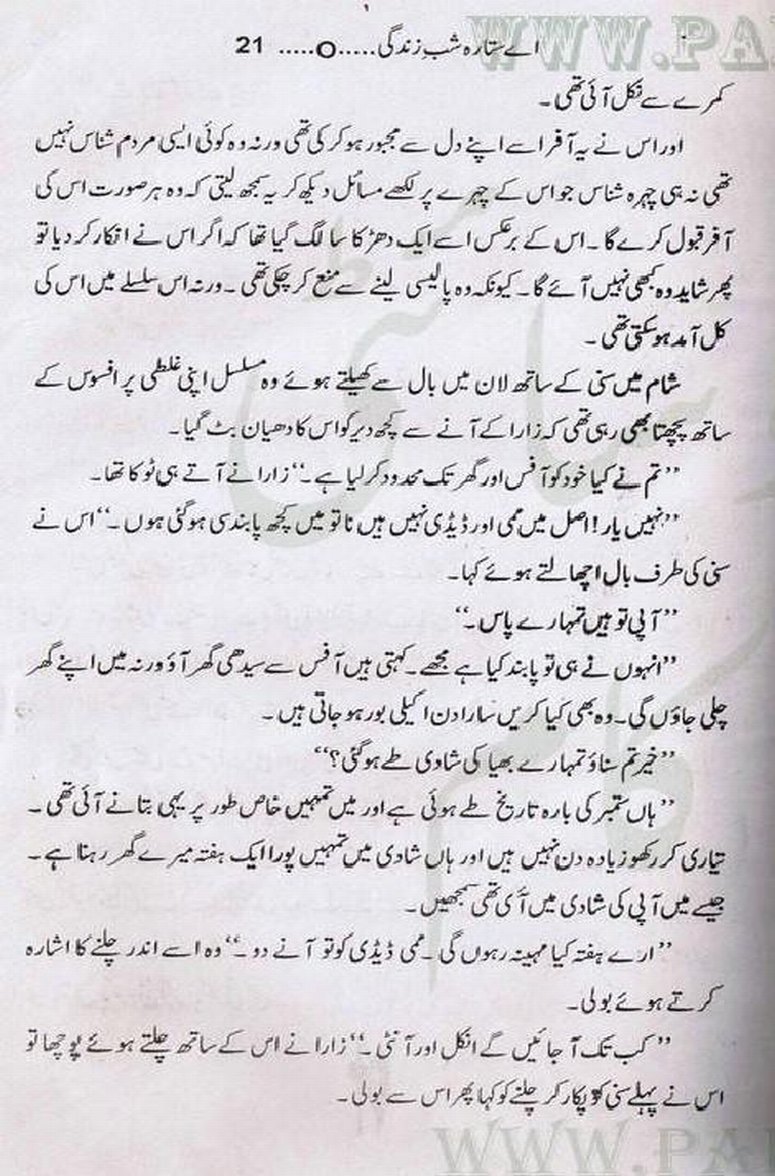 WWW.PA
اے ستارہ شبِ زندگی.....O..... 21
کمرے سے نکل آئی تھی۔
اور اس نے یہ آفر اسے اپنے دل سے مجبور ہو کر کی تھی ورنہ وہ کوئی ایسی مردم شناس نہیں
تھی نہ ہی چہرہ شناس جو اس کے چہرے پر لکھے مسائل دیکھ کر یہ سمجھ لیتی کہ وہ ہر صورت اس کی
آفر قبول کرے گا۔ اس کے برعکس اسے ایک دھڑکا سا لگ گیا تھا کہ اگر اس نے انکار کر دیا تو
پھر شاید وہ کبھی نہیں آئے گا۔ کیونکہ وہ پالیسی لینے سے منع کر چکی تھی۔ ورنہ اس سلسلے میں اس کی
کل آمد ہو سکتی تھی۔
شام میں سنی کے ساتھ لان میں بال سے کھیلتے ہوئے وہ مسلسل اپنی غلطی پر افسوس کے
ساتھ پچھتا بھی رہی تھی کہ زارا کے آنے سے کچھ دیر کو اس کا دھیان بٹ گیا۔
”تم نے کیا خود کو آفس اور گھر تک محدود کر لیا ہے۔“ زارا نے آتے ہی ٹوکا تھا۔
”نہیں یار! اصل میں ممی اور ڈیڈی نہیں ہیں نا تو میں کچھ پابند سی ہو گئی ہوں۔“ اس نے
سنی کی طرف بال اچھالتے ہوئے کہا۔
”آپی تو ہیں تمہارے پاس۔“
”انہوں نے ہی تو پابند کیا ہے مجھے۔ کہتی ہیں آفس سے سیدھی گھر آؤ ورنہ میں اپنے گھر
چلی جاؤں گی۔ وہ بھی کیا کریں سارا دن اکیلی بور ہو جاتی ہیں۔
”خیر تم سناؤ تمہارے بھیا کی شادی طے ہو گئی؟“
”ہاں ستمبر کی بارہ تاریخ طے ہوئی ہے اور میں تمہیں خاص طور پر یہی بتانے آئی تھی۔
تیاری کر رکھو زیادہ دن نہیں ہیں اور ہاں شادی میں تمہیں پورا ایک ہفتہ میرے گھر رہنا ہے۔
جیسے میں آپی کی شادی میں آئی تھی سمجھیں۔
”ارے ہفتہ کیا مہینہ رہوں گی۔ ممی ڈیڈی کو تو آنے دو۔“ وہ اسے اندر چلنے کا اشارہ
کرتے ہوئے بولی۔
”کب تک آ جائیں گے انکل اور آنٹی۔“ زارا نے اس کے ساتھ چلتے ہوئے پوچھا تو
اس نے پہلے سنی کو پکار کر چلنے کو کہا پھر اس سے بولی۔
WWW.PA